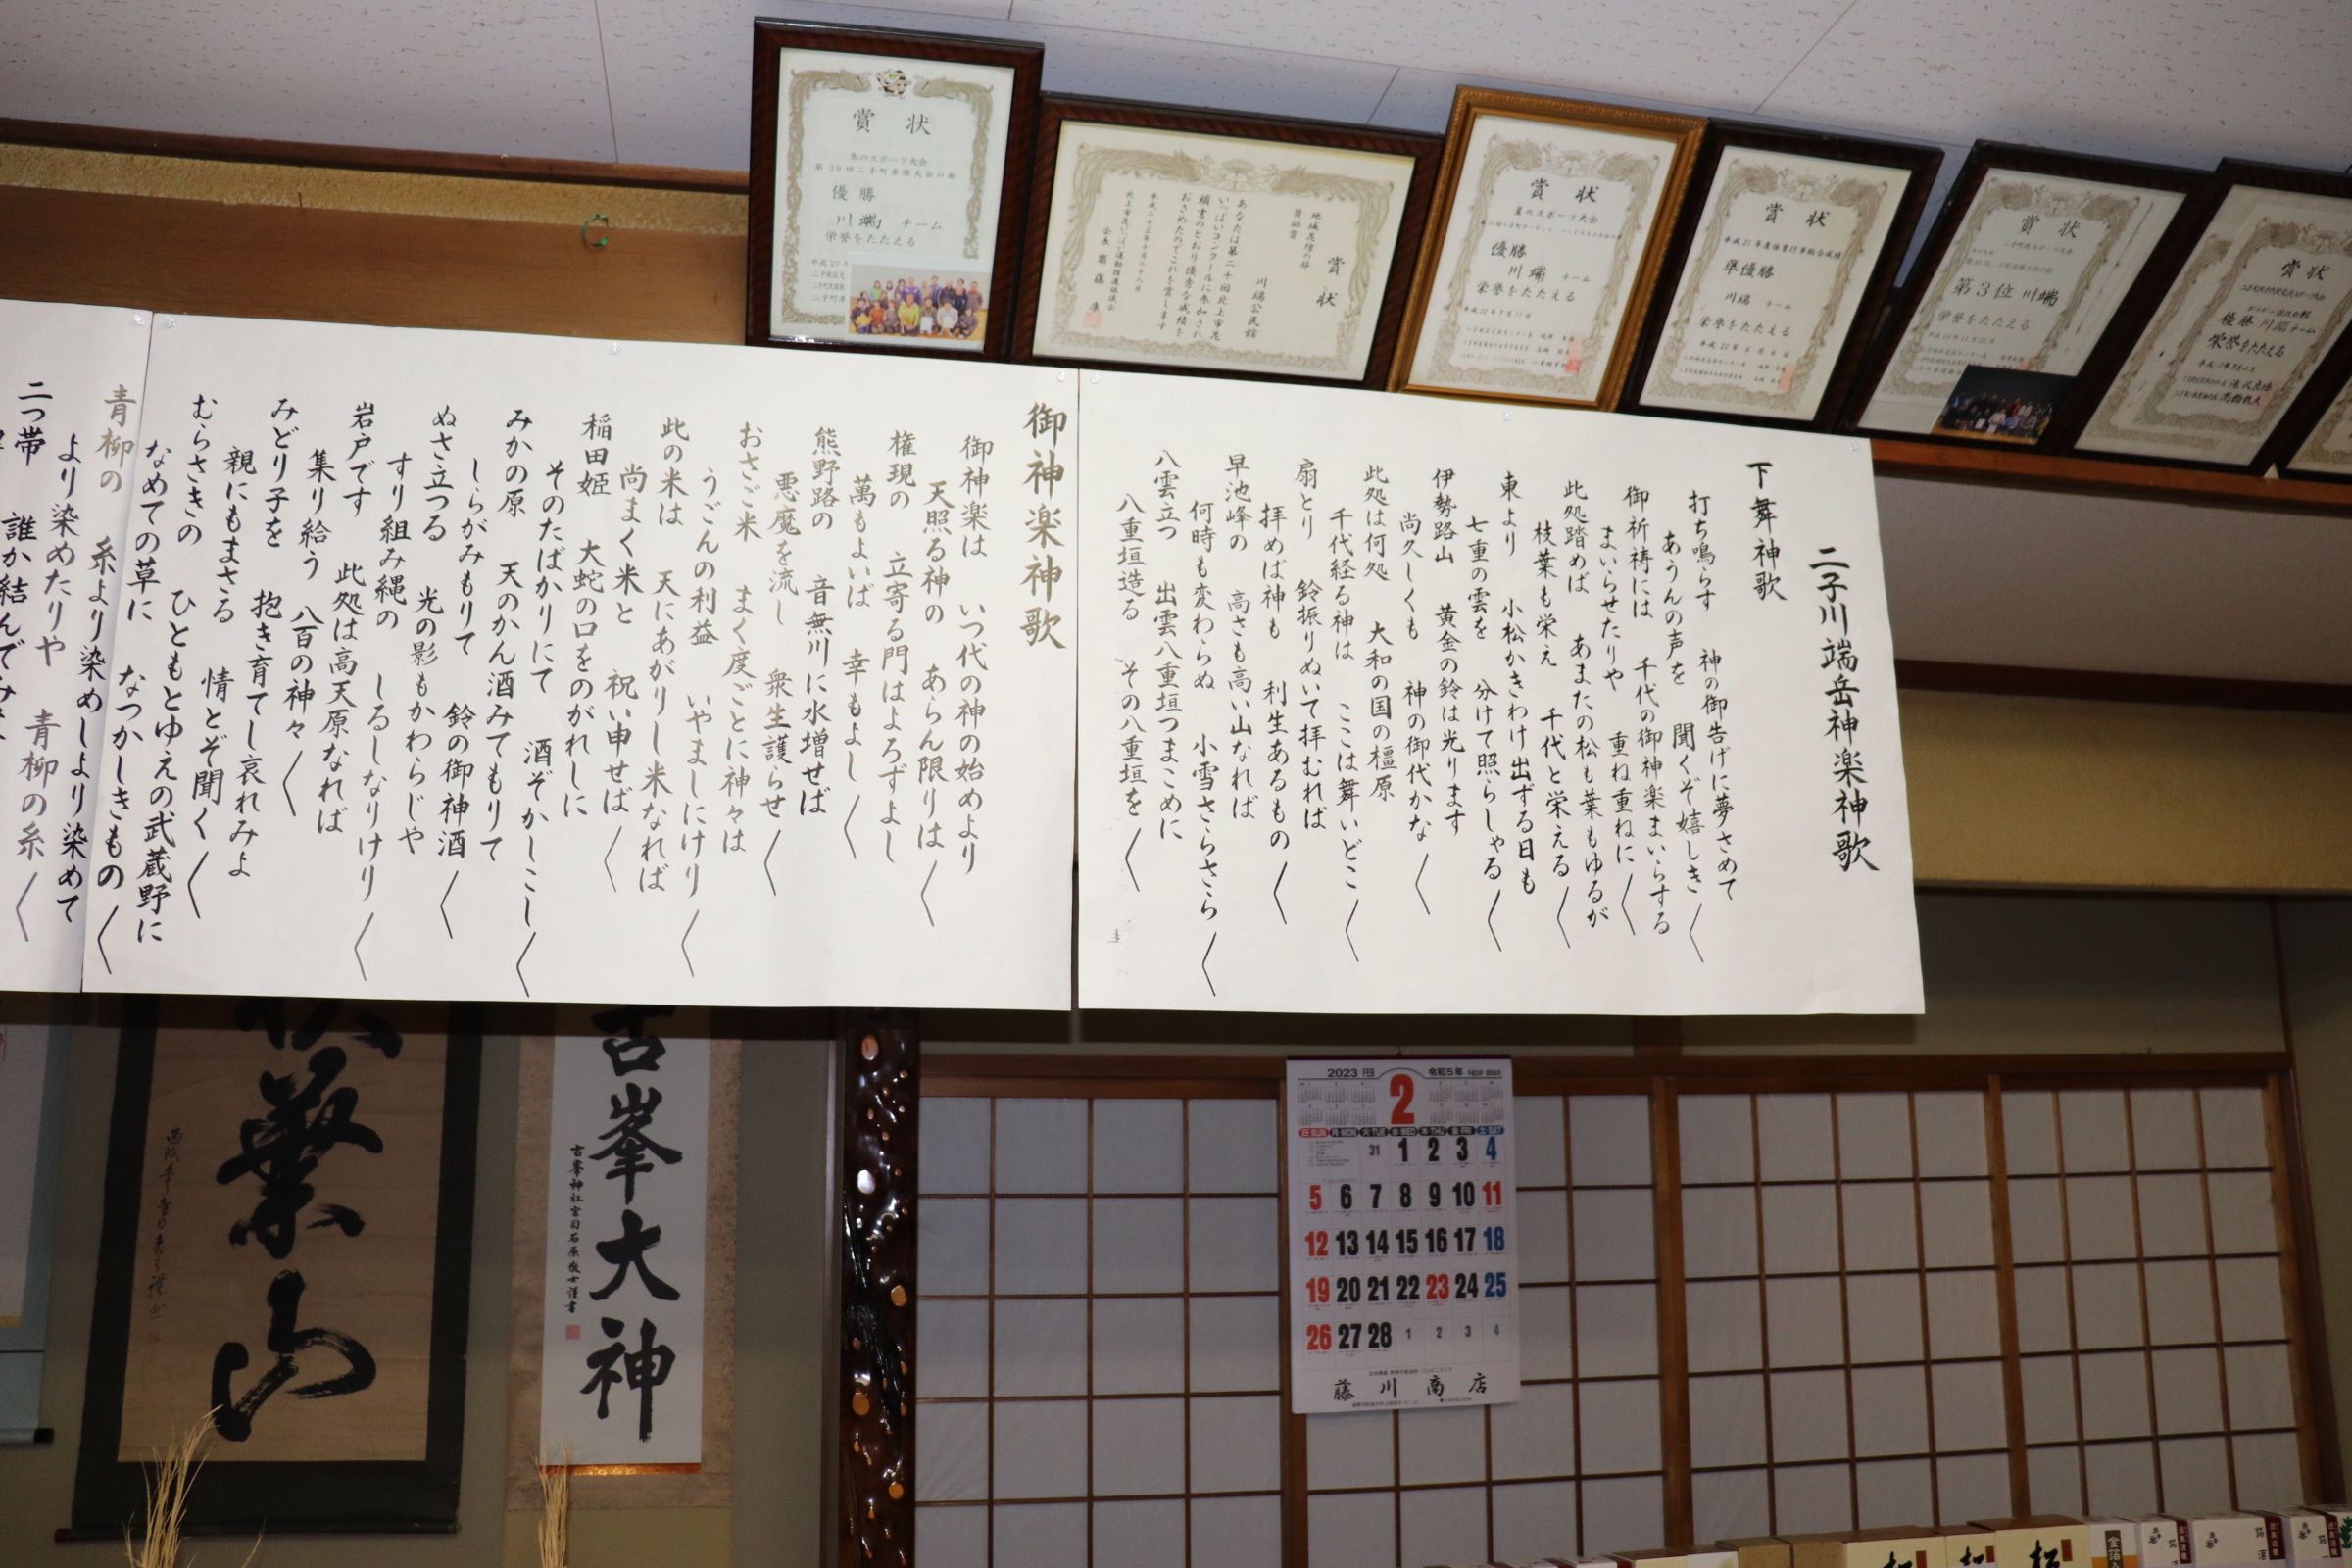 二子川端岳神楽神歌
下舞神歌
打ち鳴らす 神の御告げに夢さめて
あうんの声を 聞くぞ嬉しき〱
御祈祷には 千代の御神楽まいらする
まいらせたりや 重ね重ねに〱
此処踏めば あまたの松も葉もゆるが
枝葉も栄え 千代と栄える〱
東より 小松かきわけ出ずる日も
七重の雲を 分けて照らしゃる〱
伊勢路山 黄金の鈴は光ります
尚久しくも 神の御代かな〱
此処は何処 大和の国の橿原
千代経る神は ここは舞いどこ〱
扇とり 鈴振りぬいて拝むれば
拝めば神も 利生あるもの〱
早池峰の 高さも高い山なれば
何時も変わらぬ 小雪さらさら〱
八雲立つ 出雲八重垣つまこめに
八重垣造る その八重垣を〱
御神楽神歌
御神楽は いつ代の神の始めより
天照る神の あらん限りは〱
権現の 立寄る門はよろずよし
萬もよいば 幸もよし〱
熊野路の 音無川に水増せば
悪魔を流し 衆生護らせ〱
おさご米 まく度ごとに神々は
うごんの利益 いやましにけり〱
此の米は 天にあがりし米なれば
尚まく米と 祝い申せば〱
稲田姫 大蛇の口をのがれしに
そのたばかりにて 酒ぞかしこし〱
みかの原 天のかん酒みてもりて
しらがみもりて 鈴の御神酒〱
ぬさ立つる 光の影もかわらじや
すり組み縄の しるしなりけり〱
岩戸です 此処は高天原なれば
集り給う 八百の神々〱
みどり子を 抱き育てし哀れみよ
親にもまさる 情とぞ聞く〱
むらさきの ひともとゆえの武蔵野に
なめての草に なつかしきもの〱
青柳の 糸より染めしより染めて
より染めたりや 青柳の糸〱
二つ帯
誰か結んで
賞状
冬のスポーツ大会
第39回二子町卓球大会の部
優勝
川端 チーム
栄誉をたたえる
平成27
賞状
地域花壇の部
奨励賞
川端公民館
あなたは第二十回北上市花
いっぱいコンクールに参加され
頭書のとおり優秀な成績を
おさめたのでこれを賞します
平成二十三年十月二十八日
北上市花いっぱい運動推進協議会
会長 齋藤
賞状
夏のスポーツ大会
優勝
川端 チーム
栄誉をたたえる
賞状
平成21年度体育行事総合成績
準優勝
川端 チーム
栄誉をたたえる
賞状
第3位 川端
栄誉をたたえる
賞状
優勝 川端チーム
栄誉をたたえる
繁山
古峯大神
古峯神社宮司石原敬士謹書
2023 FEB 2 令和5年
日SUN 月MON 火TUE 水WED 木THU 金FRI 土SAT
31 1 2 3 4
5 6 7 8 9 10 11
12 13 14 15 16 17 18
19 20 21 22 23 24 25
26 27 28 1 2 3 4
藤川商店
金箔